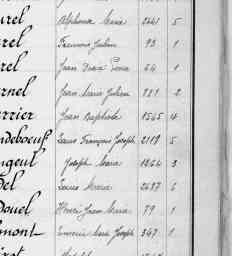 urel Alphonse Marie 2641 5
urel François Julien 93 1
rel Jean Marie Pierre 64 1
rnel Jean Marie Julien 721 2
rrier Jean Baptiste 1545 4
ndebœuf Louis François Joseph 2119 5
ngeul Joseph Marie 1264 3
del Louis Marie 2697 6
Douel Henri Jean Marie 79 1
mont Eugenie Marie Joseph 347 1